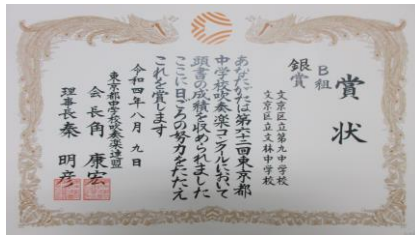 賞状
B組
銀賞
文京区立第九中学校
文京区立文林中学校
あなたがたは第六十二回東京都
中学校吹奏楽コンクールにおいて
頭書の成績を収められました
ここに日ごろの努力をたたえ
これを賞します
令和四年八月九日
東京都中学校吹奏楽連盟
会長角康宏
理事長秦明彦